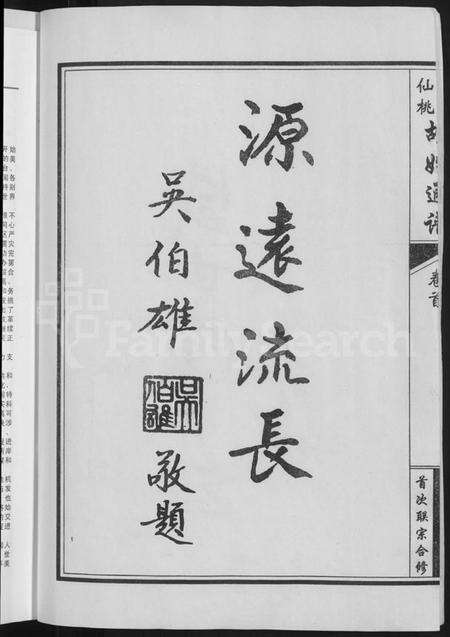 仙桃胡姓通谱
卷首
首次联宗合修
源遠流長
吳伯雄
吳伯雄
敬題
FamilySearch